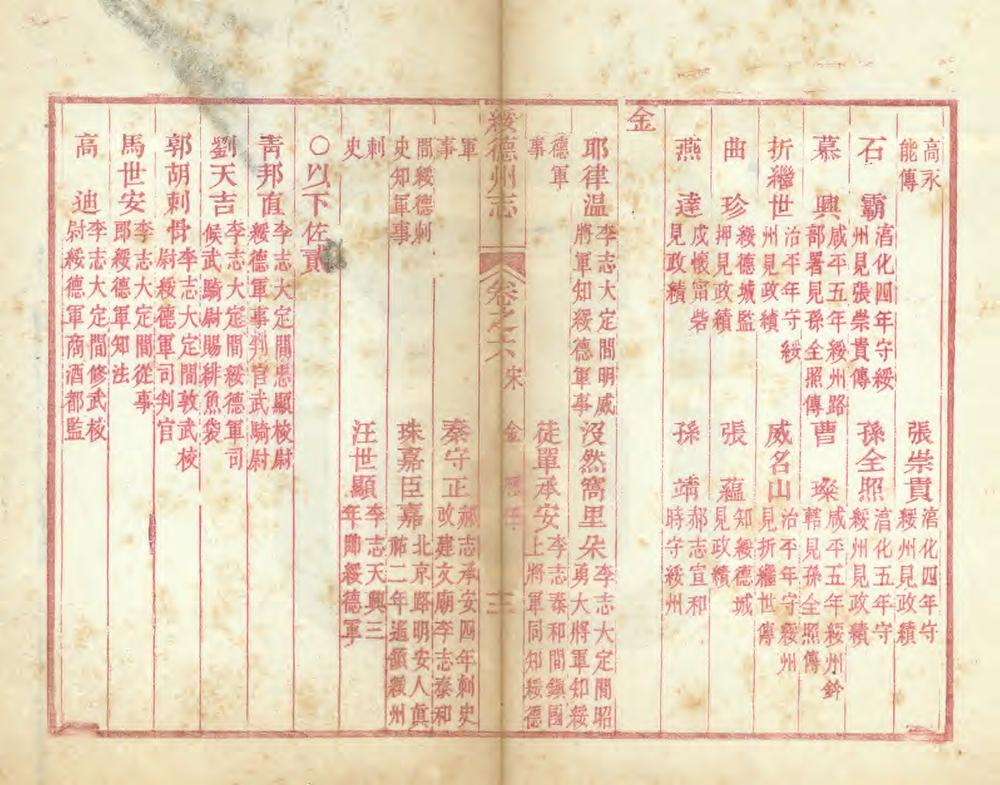 高永
能傳
張崇貴 淯化四年守
綏州見政績
石霸 淯化四年守綏
州見張崇貴傳
孫全照 淯化五年守
綏州見政績
慕興 咸平五年綏州路
部署見孫全照傳
曹璨 咸平五年綏州鈐
轄見孫全照傳
折繼世 治平年守綏
州見政績
威名山 治平年守綏州
見折繼世傳
曲珍 綏德城監
押見政績
張蘊 知綏德城
見政績
燕達 戍懷甯砦
見政績
孫靖 郝志宣和
時守綏州
金
耶律温 李志大定間明威
將軍知綏德軍事
沒然窩里朵 李志大定間昭
勇大將軍知綏
德軍
事
徒單承安 李志泰和間鎭國
上將軍同知綏德
綏德州志 卷之六 宋 金 三
軍
事
秦守正 郝志承安四年刺史
改建文廟李志泰和
間綏德刺
史知軍事
珠嘉臣嘉 北京路明安人眞
祐二年遥領綏州
刺
史
汪世顯 李志天興三
年帥綏德軍
〇以下佐貳
靑邦直 李志大定間忠顯校尉
綏德軍事判官武騎尉
劉天吉 李志大定間綏德軍司
候武騎尉賜緋魚袋
郭胡刺骨 李志大定間敦武校
尉綏德軍司判官
馬世安 李志大定間從事
郎綏德軍知法
高迪 李志大定間修武校
尉綏德軍商酒都監